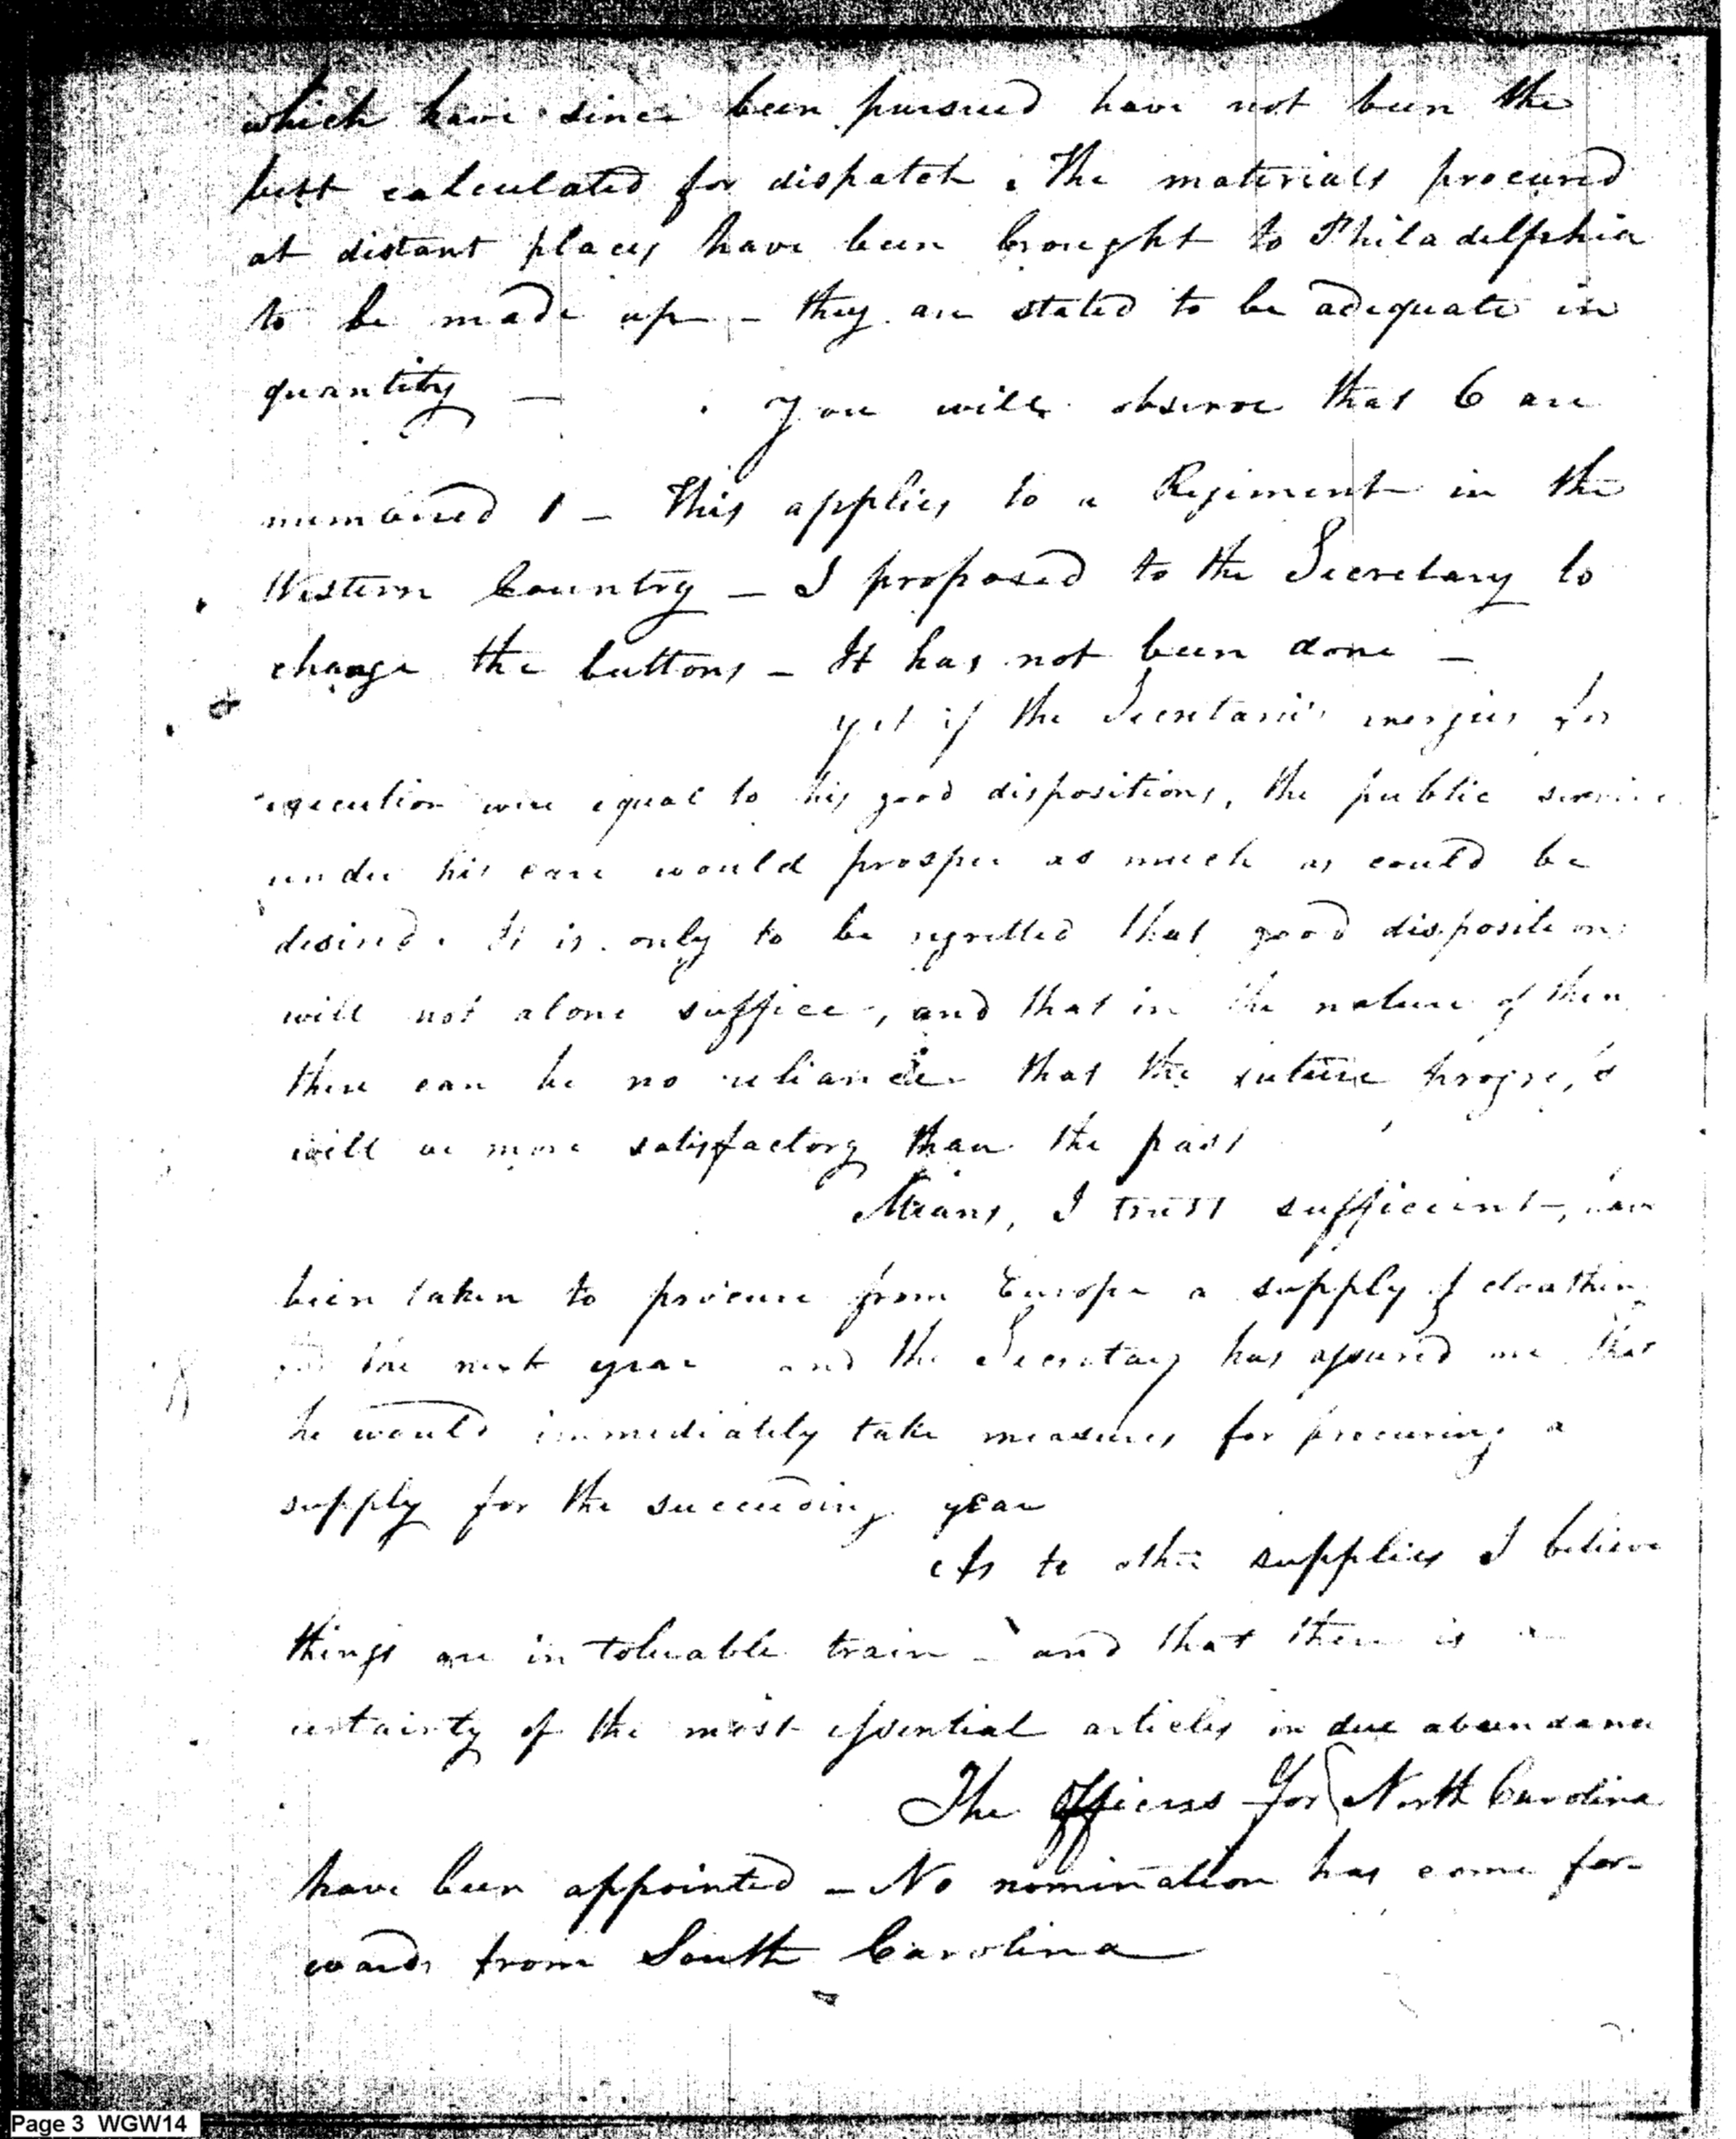 which have since been pursued have not been the
best calculated for dispatch. The materials procured
at distant places have been brought to Philadelphia
to be made up – they are stated to be adequate in
quantity –
You will observe that 6 are
numbered 1 – This applies to a Regiment in the
Western Country – I proposed to the Secretary to
change the buttons – It has not been done –
yet if the Secretaries energies for
execution were equal to his good dispositions, the public service
under his care would prosper as much as could be
desired. It is only to be regretted that good dispositions
will not alone suffice, and that in the nature of them
there can be no reliance that the future progress
will be more satisfactory than the past
Means, I trust sufficient, have
been taken to procure from Europe a supply of cloathing
for the next year and the Secretary has assured me that
he would immediately take measures for procuring a
supply for the succeeding year
As to other supplies I believe
things are in toluable train – and that there is a
certainty of the most essential articles in due abundance
The officers for North Carolina
have been appointed – No nomination has come for-
wards from South Carolina
Page 3 WGW14